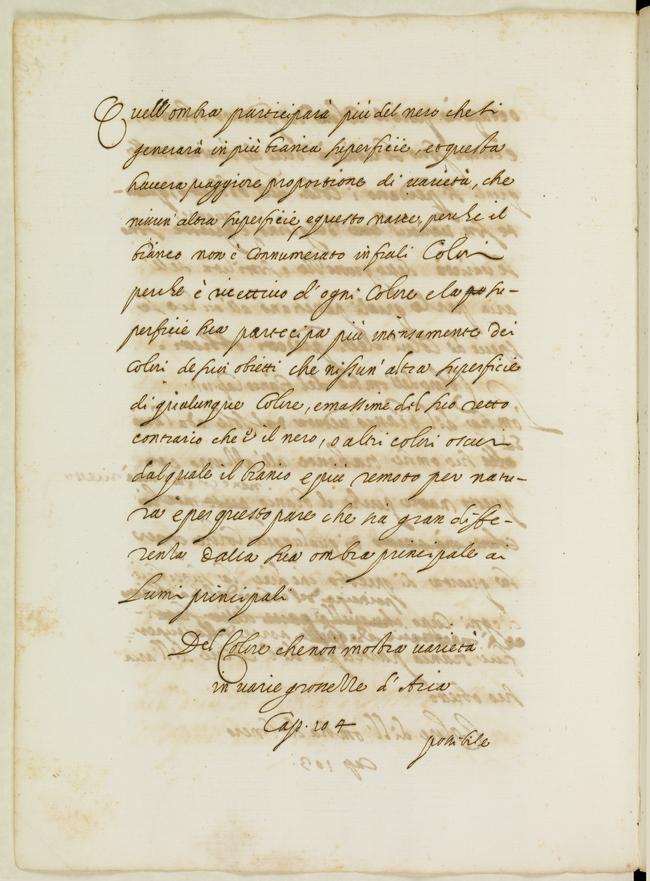 Quell'ombra participarà più del nero che si
generarà in più bianca superficie, et questa
haverà maggiore proportione di varietà, che
niun'altra superficie, e questo nasce, perche il
bianco non è connumerato infrali Colori
perche è ricettivo d'ogni Colore e la su-
perficie sua partecipa più intensamente dei
colori de suoi obietti che nissun'altra superficie
di qualunque Colore, e massime del suo retto
contrario che è il nero, o altri colori oscuri
dal quale il bianco e più remoto per natu-
ra e per questo pare che sia gran diffe-
renza dalla sua ombra principale ai
Lumi principali
Del Colore che non mostra varietà
in varie grossezze d'Aria
Cap. 104
possibile